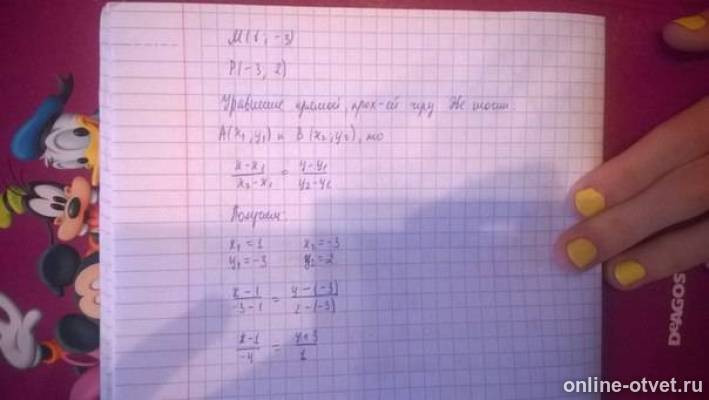 M(1, -3)
P(-3, 2)
Уравнение прямой, прох-ей чрез две точки
A(x₁, y₁) и B(x₂, y₂),
x-x₁/x₂-x₁ = y-y₁/y₂-y₁
Получаем:
x₁=1 x₂=-3
y₁=-3 y₂=2
x-1/-3-1 = y-(-3)/2-(-3)
x-1/-4 = y+3
DeAGOS
online-otvet.ru